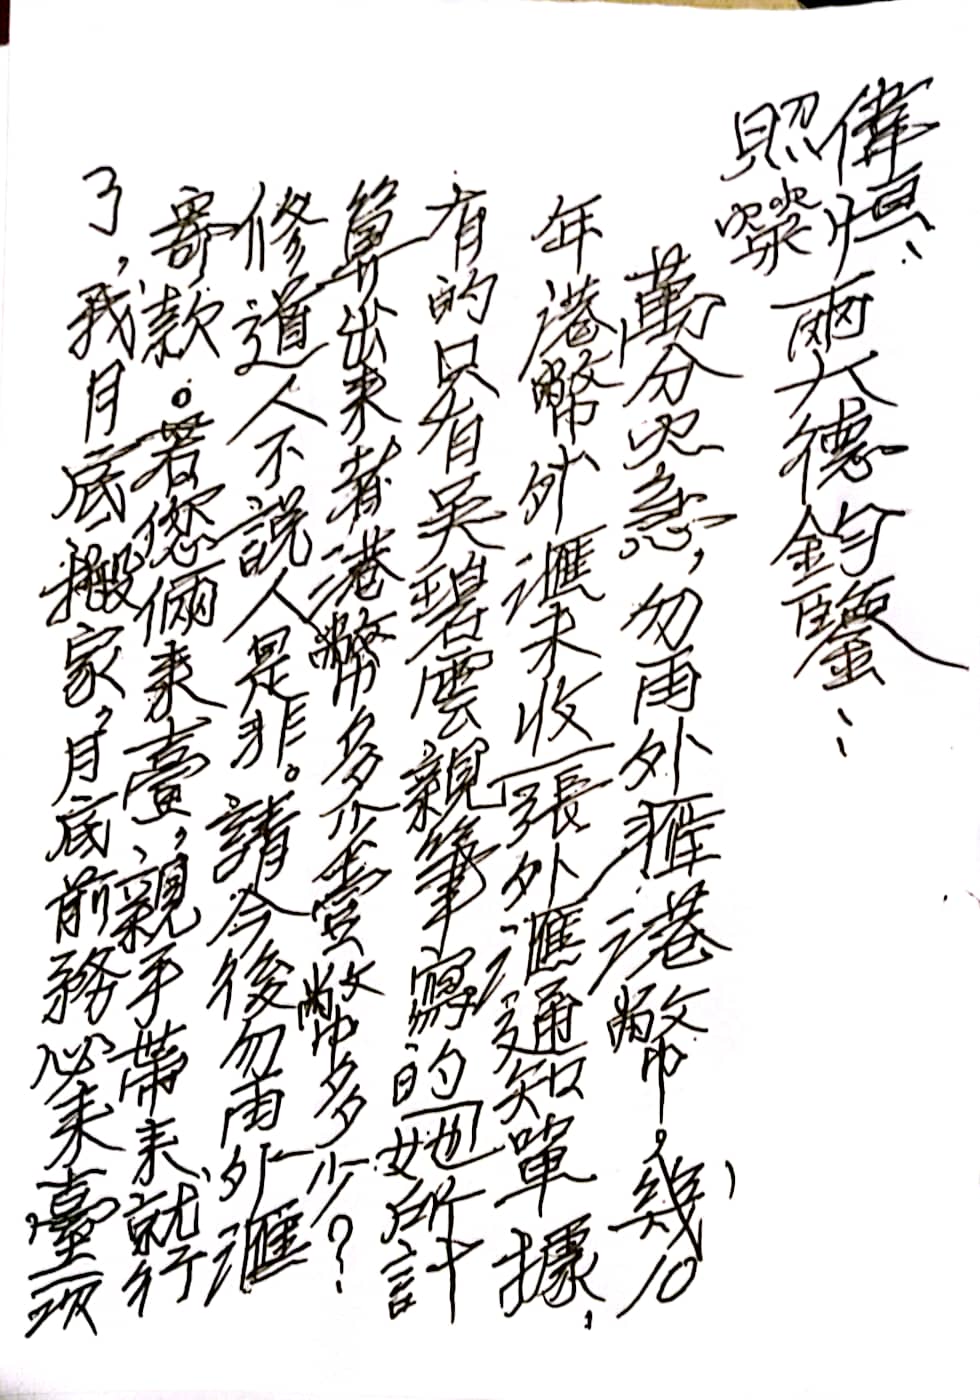 偉恒、
照榮
兩大德鈞鑒：
萬分火急，勿再外匯港幣。幾10
年港幣外滙未收一張外滙通知單據，
有的只有吳碧雲親筆寫的她所計
算出來若港幣多少臺幣多少？
修道人不說人是非。請今後勿再外滙
寄款。若您倆來臺，親手帶來就行
了，我月底搬家，月底前務必來臺一次